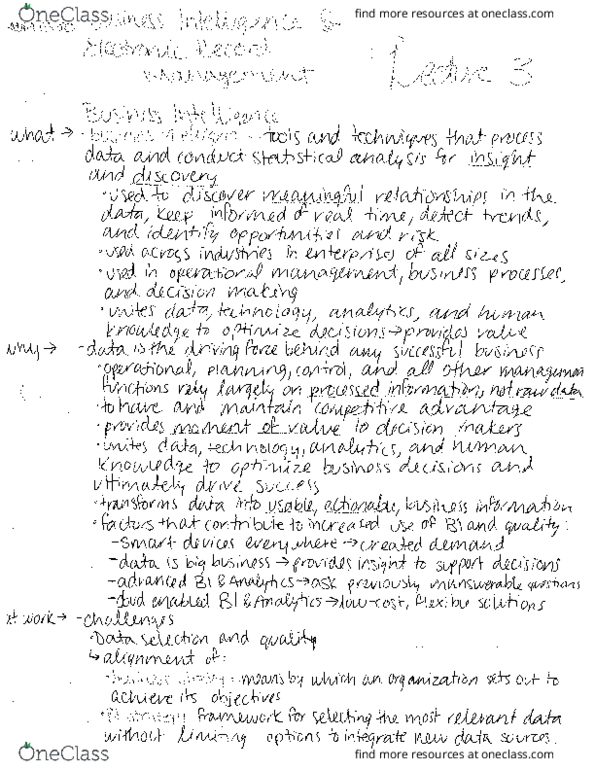 OneClass
find more resources at oneclass.com
find more resources at oneclass.com
Business Intelligence &
Electronic Record
Management
Lecture 3
Business Intelligence
what → - business intelligence - tools and techniques that process
data and conduct statistical analysis for insight
and discovery
· used to discover meaningful relationships in the
data, keep informed of real time, detect trends,
and identify opportunities and risk
· used across industries in enterprises of all sizes
· used in operational management, business processes,
and decision making
· unites data, technology, analytics, and human
knowledge to optimize decisions → provides value
why → - data is the driving force behind any successful business
· operational, planning, control, and all other management
functions rely largely on processed information, not raw data
· to have and maintain competitive advantage
· provides moment of value to decision makers
· unites data, technology, analytics, and human
knowledge to optimize business decisions and
ultimately drive success
· transforms data into usable, actionable, business information
· factors that contribute to increased use of BI and quality:
- smart devices everywhere → created demand
- data is big business → provides insight to support decisions
- advanced BI & Analytics → ask previously unanswerable questions
- cloud enabled BI & Analytics → low-cost, flexible solutions
work → - challenges
· Data selection and quality
↳ alignment of:
· business strategy: means by which an organization sets out to
achieve its objectives
· BI strategy: framework for selecting the most relevant data
without limiting options to integrate new data sources.
OneClass
find more resources at oneclass.com
find more resources at oneclass.com